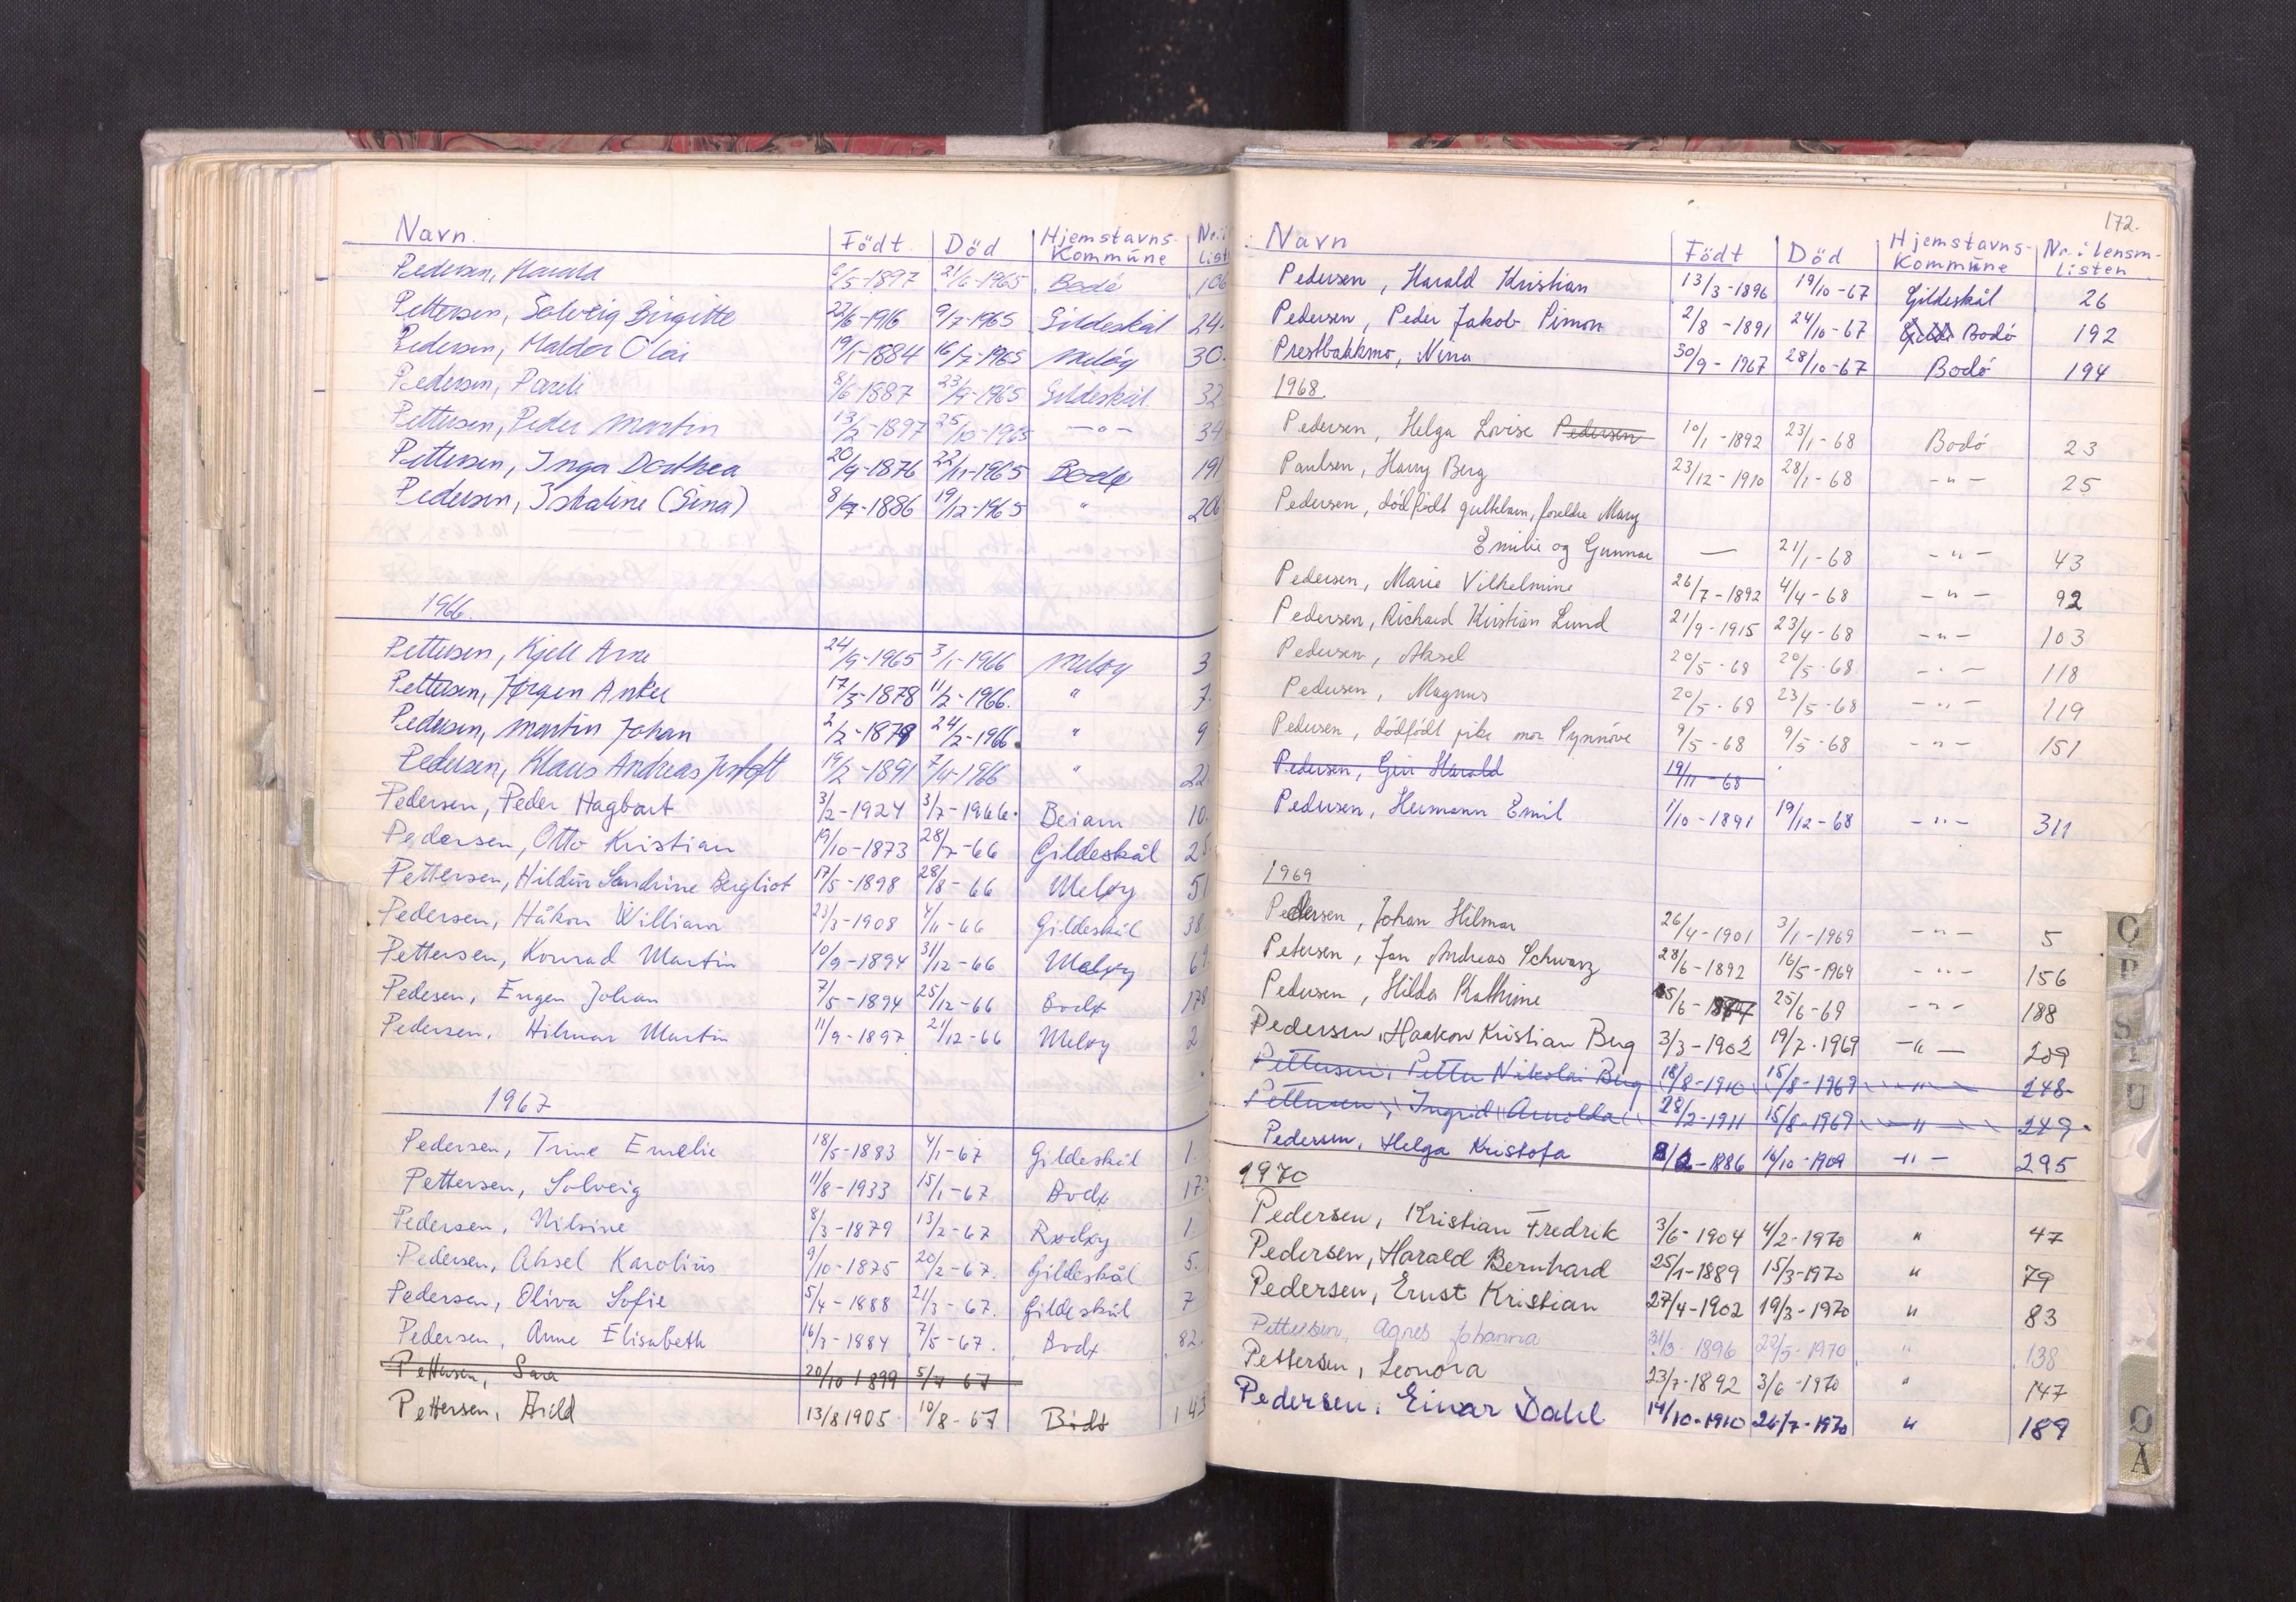 Navn. Födt. Död Hjemstavns- Kommüne Nr. i List
Pedersen, Harald 6/5-1897 21/6-1965 Bodø 106
Pettersen, Solveig Birgitte 22/6-1916 9/7-1965 Gildeskål 24.
Pedersen, Haldor Olai 19/1-1884 16/7-1965 Meløy 30.
Pedersen, Pareli 8/6-1887 23/9-1965 Gildeskål 32
Pettersen, Peder Martin 13/2-1897 25/10-1965 -"- 34
Pettersen, Inga Dorthea 20/9-1876 22/11-1965 Bodø 191
Pedersen, (Sina) 8/7-1886 19/12-1965 " 206
1966.
Pettersen, Kjell Arne 24/9-1965 3/1-1966 Meløy 3
Pettersen, Jørgen Anker 17/3-1878 11/2-1966. " 7.
Pedersen, Martin Johan 2/2-1879 24/2-1966. " 9
Pedersen, Klaus Andreas 19/2-1891 7/4-1966 " 22.
Pedersen, Peder Hagbart 3/2-1924 3/7-1966. Beiarn 10.
Pedersen, Otto Kristian 19/10-1873 28/7-66 Gildeskål 25.
Pettersen, Hildur Sandrine Bergliot 17/5-1898 28/8-66 Meløy 51
Pedersen, Håkon William 23/3-1908 4/11-66 Gildeskål 38.
Pettersen, Konrad Martin 10/9-1894 31/12-66 Meløy 69
Pedesen, Eugen Johan 7/5-1894 25/12-66 Bodø 178
Pedersen, Hilmar Martin 11/9-1897 21/12-66 Meløy 2
1967
Pedersen, Trine Emelie 18/5-1883 4/1-67 Gildeskål 1.
Pettersen, Solveig 11/8-1933 15/1-67 Bodø 17
Pedersen, Nilsine 8/3-1879 13/2-67 Rødøy 1.
Pedersen, Aksel Karolius 9/10-1875 20/2-67. Gildeskål 5.
Pedersen, Oliva Sofie 5/4-1888 21/3-67. Gildeskål 7
Pedersen, Anne Elisabeth 16/3-1884 7/5-67. Bodø 82.
Pettersen, Sara 20/10 1899 5/7 67
Pettersen, Arild 13/8 1905 10/8-67 Bodø 143
172.
Navn Födt Död Hjemstavns- Kommüne Nr. i lensm- listen
Pedersen, Harald Kristian 13/3-1896 19/10-67 Gildeskål 26
Pedersen, Peder Jakob Simon 2/8-1891 24/10-67 Bodö 192
Prestbakkmo, Nina 30/9-1967 28/10-67 Bodö 194
1968.
Pedersen, Helga Lovise Pedersen 10/1-1892 23/1-68 Bodö 23
Paulsen, Harry Berg 23/12-1910 28/1-68 -"- 25
Pedersen, dödfödt guttebarn, foreldre Mary
Emilie og Gunnar — 21/1-68 -"- 43
Pedersen, Marie Vilhelmine 26/7-1892 4/4-68 -"- 92
Pedersen, Richard Kristian Lund 21/9-1915 23/4-68 -"- 103
Pedersen, Aksel 20/5-68 20/5-68 -"- 118
Pedersen, Magnus 20/5-68 23/5-68 -"- 119
Pedersen, dödfödt pike mor Synnöve 9/5-68 9/5-68 -"- 151
Pedersen, Geir Harald 19/11-68
Pedersen, Hermann Emil 1/10-1891 19/12-68 -"- 311
1969
Pedersen, Johan Hilmar 26/4-1901 3/1-1969 -"- 5
Petersen, Jan Andreas Schwarz 28/6-1892 16/5-1969 -"- 156
Pedersen, Hilda Kathrine 25/6-69 -"- 188
Pedersen, Haakon Kristian Berg 3/3-1902 19/7-1969 -"- 209
Pettersen, Petter Nikolai Berg 18/8-1910 15/8-1969 " 248
Pettersen, Ingrid Arnilda 28/2-1911 15/8-1969 " 249
Pedersen, Helga Kristofa 8/2-1886 16/10-1969 -"- 295
1970
Pedersen, Kristian Fredrik 3/6-1904 4/2-1970 " 47
Pedersen, Harald Bernhard 25/1-1889 15/3-1970 " 79
Pedersen, Ernst Kristian 27/4-1902 19/3-1970 " 83
Pettersen, Agnes Johanna 31/3-1896 22/5-1970 " 138
Pettersen, Leonora 23/7-1892 3/6-1970 " 147
Pedersen, Einar Dahl 14/10-1910 26/7-1970 " 189
O
P
S
T
U
Ø
Å